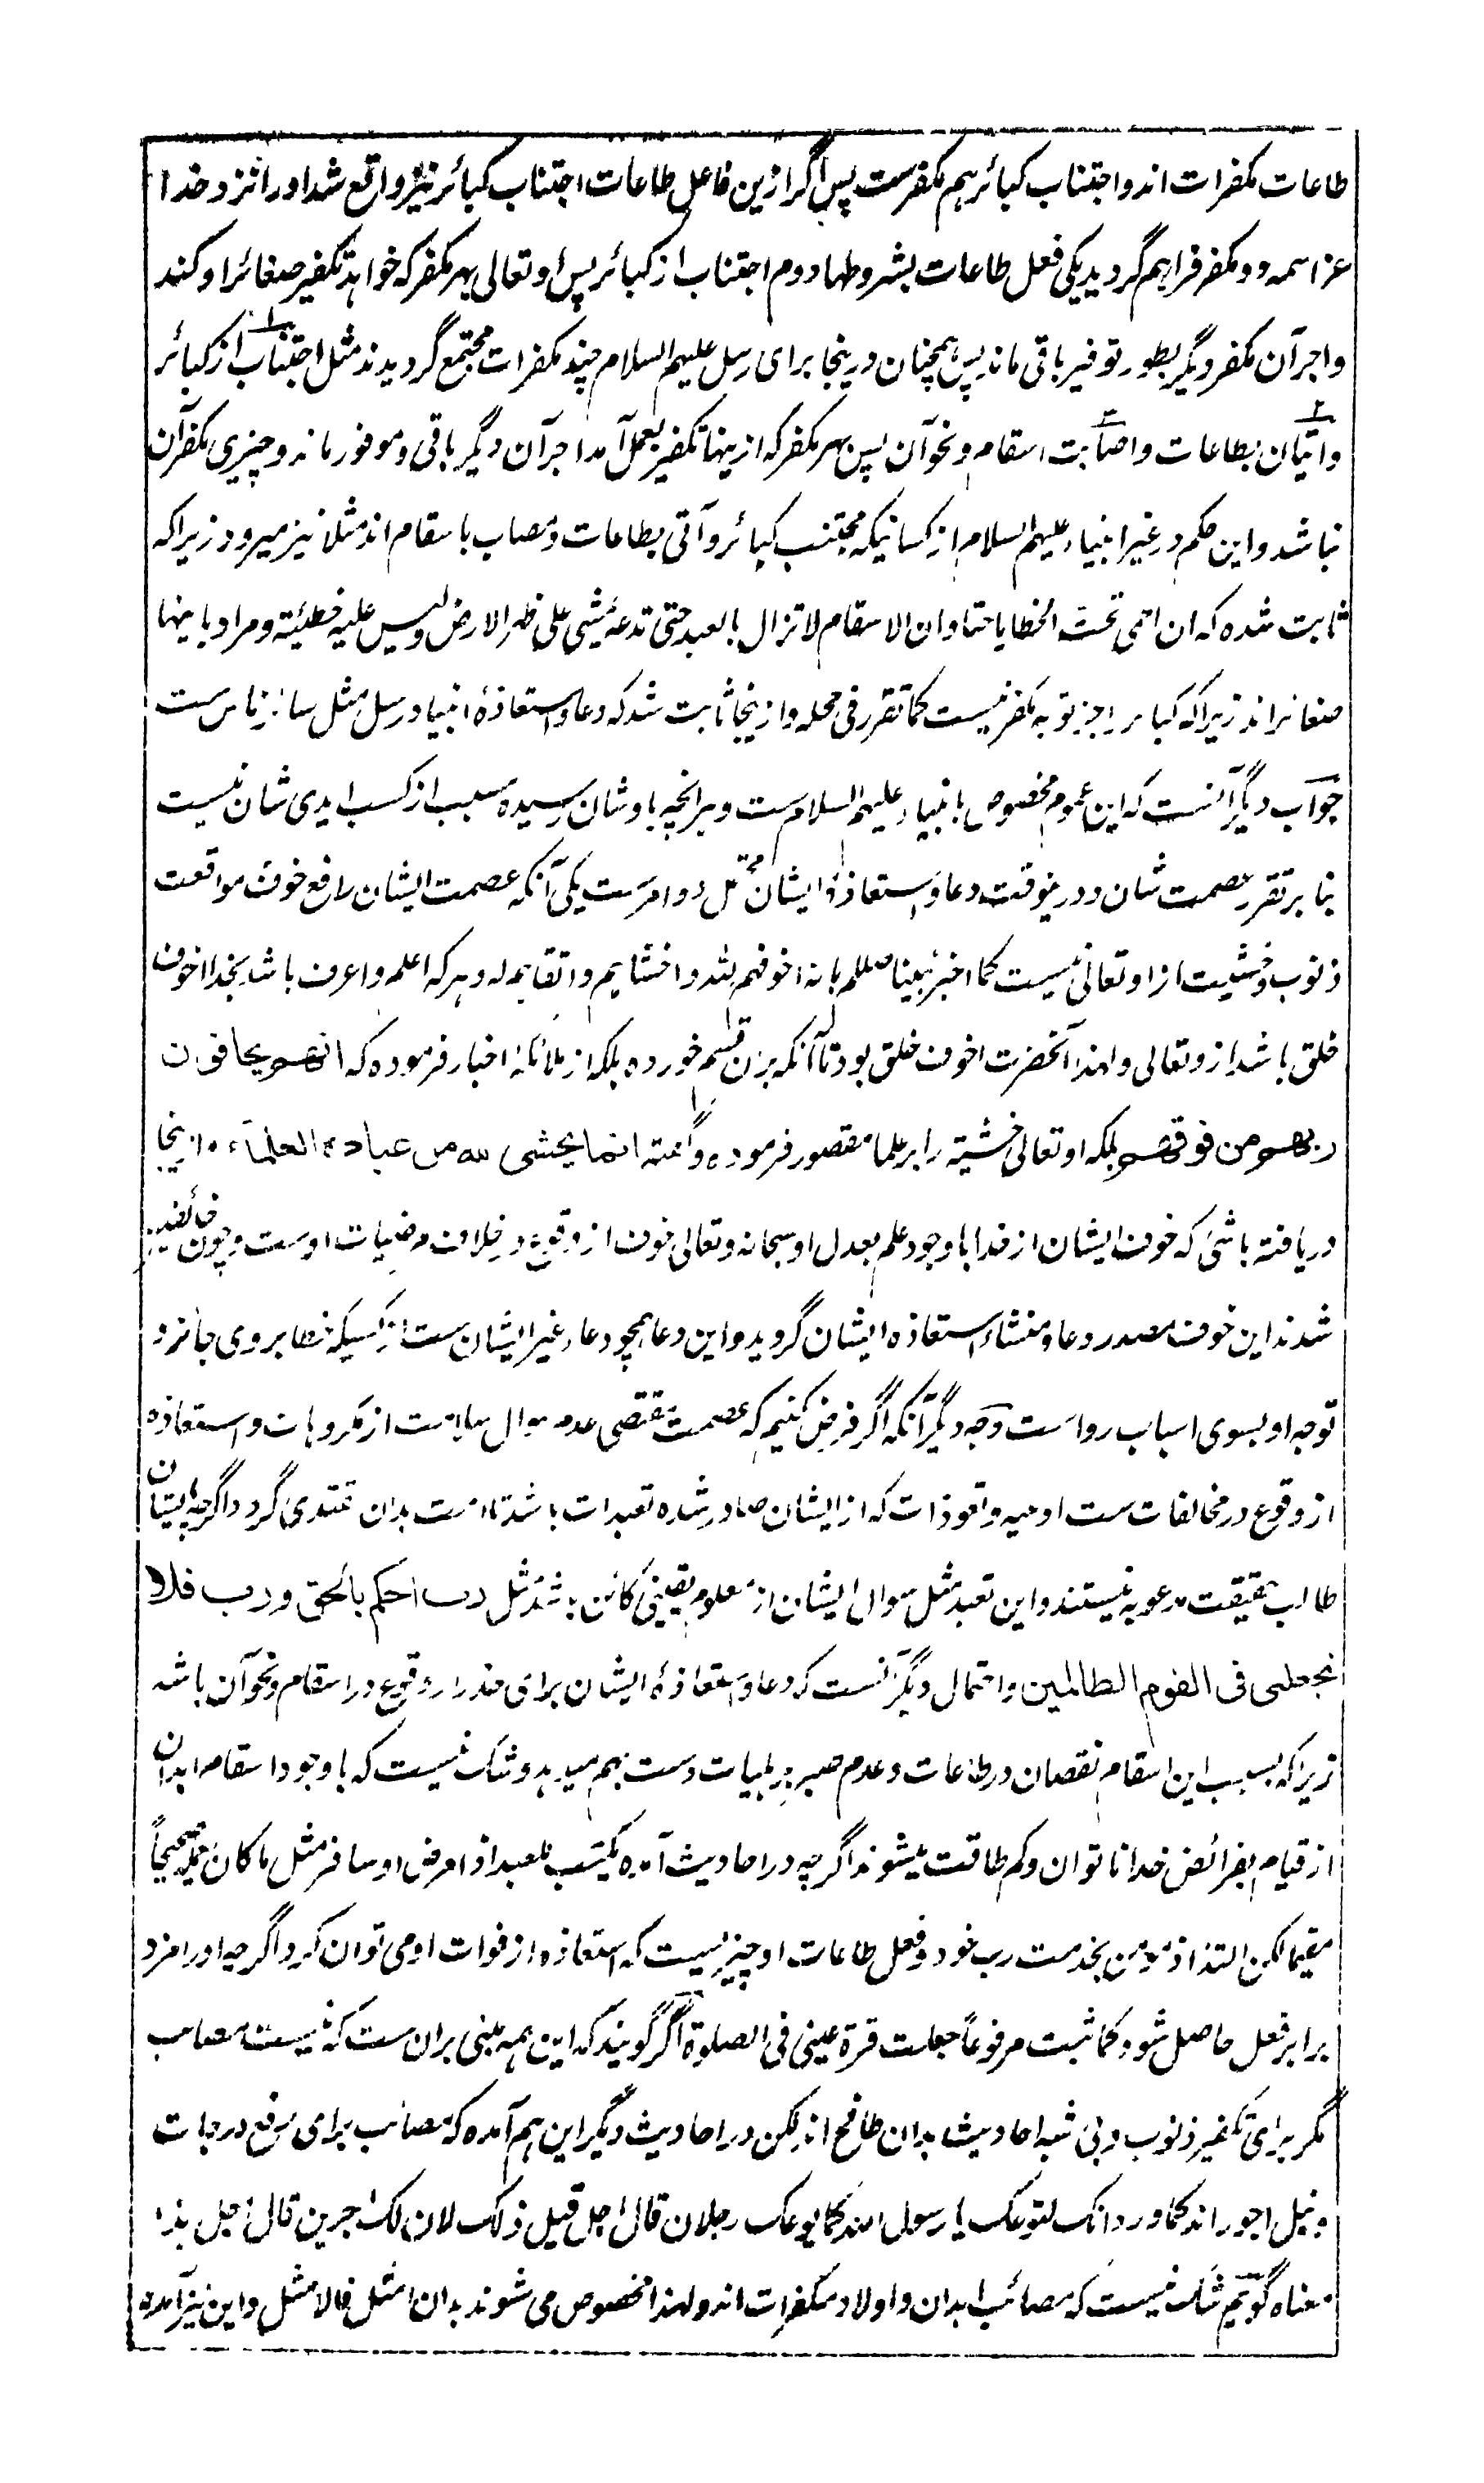 طاعات مکفرات اند و اجتناب کبائر هم مکفرست پس اگر ازین فاعل طاعات اجتناب کبائر نیز واقع شد اورا نزد خدا
عز اسمه دو مکفر فراهم گردید یکی فعل طاعات بشروطها دوم اجتناب از کبائر پس او تعالی بهر مکفر که خواهد تکفیر صغائر او کند
و اجر آن مکفر دیگر بطور توفیر باقی ماند پس همچنان در ینجا برای رسل علیهم السلام چند مکفرات مجتمع گردیدند مثل اجتناب از کبائر
و اتیان بطاعات و اصابت اسقام و نحو آن پس بهر مکفر که ازینها تکفیر بعمل آمد اجر آن دیگر باقی و موفور ماند و چیزی مکفر آن
نباشد و این حکم در غیر انبیاء علیهم السلام از کسانیکه مجتنب کبائر و آتی بطاعات و مصاب باسقام اند مثلا نیز میرود زیراکه
ثابت شده که ان الحمی تحت الخطایا حتا و ان الاسقام لا تزال بالعبد حتی تدعه یمشی علی ظهر الارض و لیس علیه خطیئته و مراد باینها
صغائر اند زیراکه کبائر را جز توبه مکفر نیست کما تقرر فی محله و ازینجا ثابت شد که دعا و استعاذهٔ انبیا و رسل مثل سائر ناس ست
جواب دیگر آنست که این عموم مخصوص بانبیاء علیهم السلام ست و هر انچه باوشان رسیده بسبب از کسب ایدی شان نیست
بنا بر تقرر عصمت شان و درینوقت دعا و استعاذهٔ ایشان محتمل دو امرست یکی آنکه عصمت ایشان رافع خوف مواقعت
ذنوب و خشیت از او تعالی نیست کما اخبر نبینا صللم بانه اخوفهم لله و اخشاهم و اتقاهم له و هر که اعلم و اعرف باشد بخدا اخوف
خلق باشد از و تعالی و لهذا آنحضرت اخوف خلق بود تا آنکه برین قسم خورده بلکه از ملائکه اخبار فرموده که انهم یخافون
ربهم من فوقهم بلکه او تعالی خشیة را بر علما مقصور فرموده و گفته انما یخشی الله من عباده العلمآء و ازینجا
دریافته باشی که خوف ایشان از خدا با وجود علم بعدل او سبحانه و تعالی خوف از وقوع در خلاف مرضیات اوست و چون خائفین
شدند این خوف مصدر دعا و منشاء استعاذه ایشان گردید و این دعا همچو دعاء غیر ایشان ست از کسیکه خطا بر وی جائز و
توجه او بسوی اسباب رواست وجه دیگر آنکه اگر فرض کنیم که عصمت مقتضی عدم سوال سلامت از مکروهات و استعاذه
از وقوع در مخالفات ست ادعیه و تعوذات که از ایشان صادر شده تعبدات باشد تا امت بدان مقتدی گردد اگرچه ایشان
طالب حقیقت مدعو به نیستند و این تعبد مثل سوال ایشان از معلوم یقینی کائن باشد مثل رب احکم بالحق و رب فلا
تجعلنی فی القوم الظالمین و احتمال دیگر آنست که دعا و استعاذهٔ ایشان برای حذر از وقوع در اسقام و نحو آن باشد
زیراکه بسبب این اسقام نقصان در طاعات و عدم صبر بر بلیات دست بهم میدهد و شک نیست که با وجود اسقام ابدان
از قیام بفرائض خدا ناتوان و کم طاقت میشوند اگرچه در احادیث آمده یکتب للعبد اذا مرض او سافر مثل ما کان یعمله صحیحاً
مقیما لکن التذاذ مومن بخدمت رب خود و فعل طاعات او چیزیست که استعاذه از فوات او می توان کرد اگرچه اورا مزد
برابر فعل حاصل شود کما ثبت مرفوعاً جعلت قرة عینی فی الصلوة اگر گویند که این همه مبنی بران ست که نیست مصائب
مگر برای تکفیر ذنوب و بی شبه احادیث بدان طافح اند لکن در احادیث دیگر این هم آمده که مصائب برای رفع درجات
و نیل اجور اند کما ورد انک لتوعک یا رسول الله کما یوعک رجلان قال اجل قیل ذلک لان لک اجرین قال اجل هذا
معناه گویم شک نیست که مصائب ابدان و اولاد مکفرات اند و لهذا مخصوص می شوند بدان امثل فالامثل و این نیز آمده